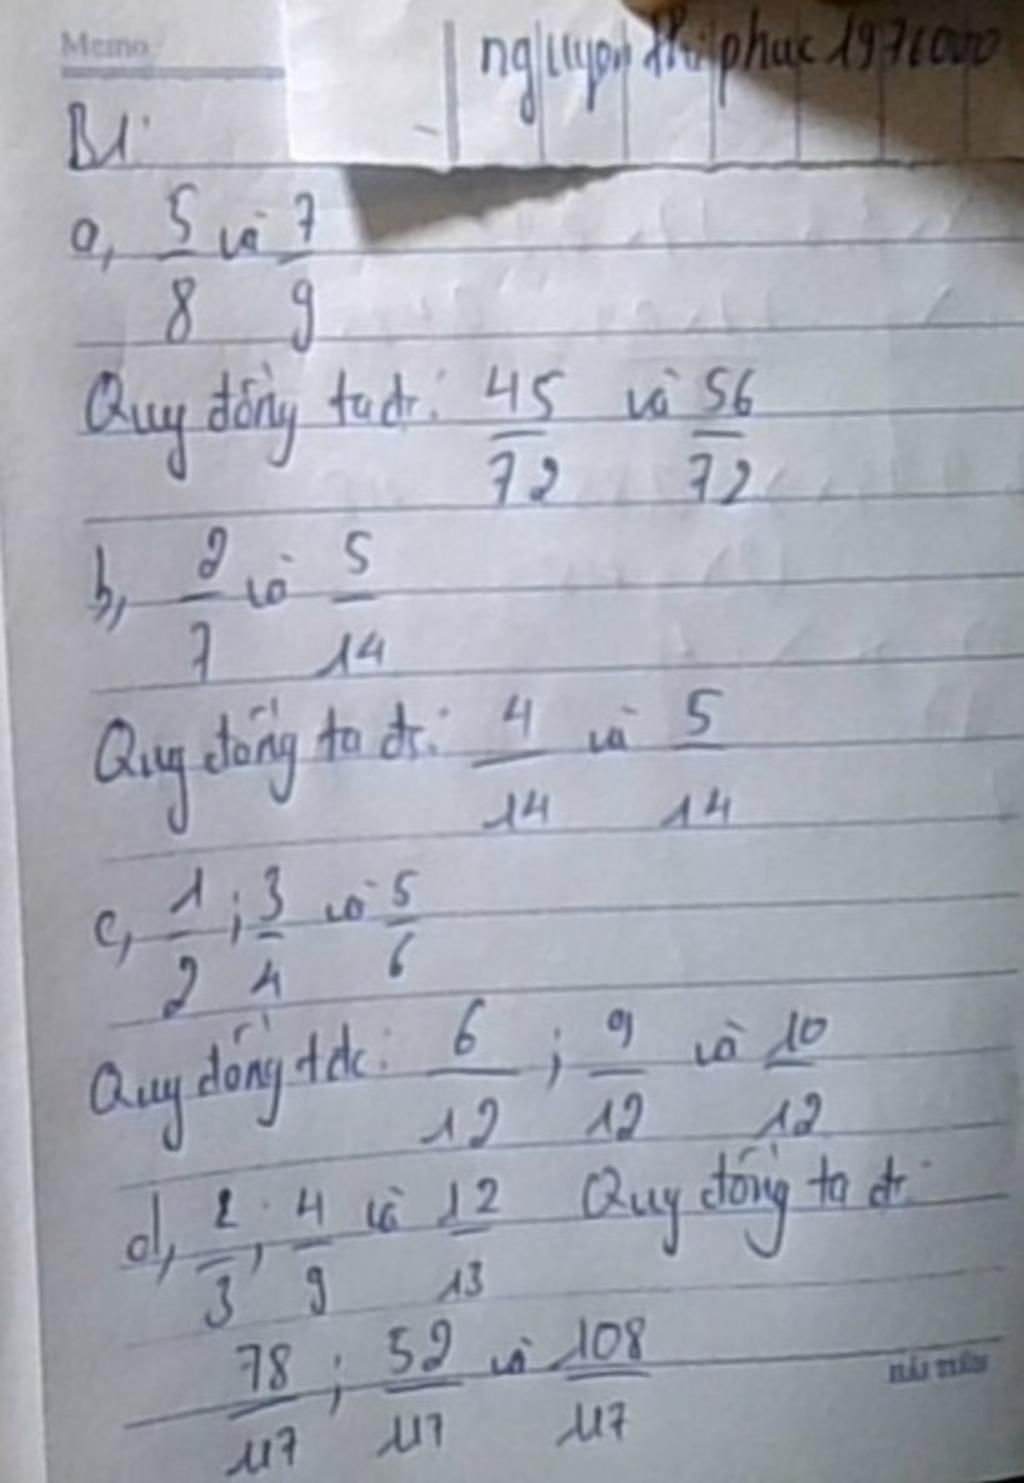 Memo
nguyen thi phuc 1976000
B1:
a, 5/8 và 7/9
Quy đồng ta đc: 45/72 và 56/72
b, 2/7 và 5/14
Quy đồng ta đc: 4/14 và 5/14
c, 1/2 ; 3/4 và 5/6
Quy đồng tđc: 6/12 ; 9/12 và 10/12
d, 2/3 ; 4/9 và 12/13 Quy đồng ta đc:
78/117 ; 52/117 và 108/117
HẢI TIẾN